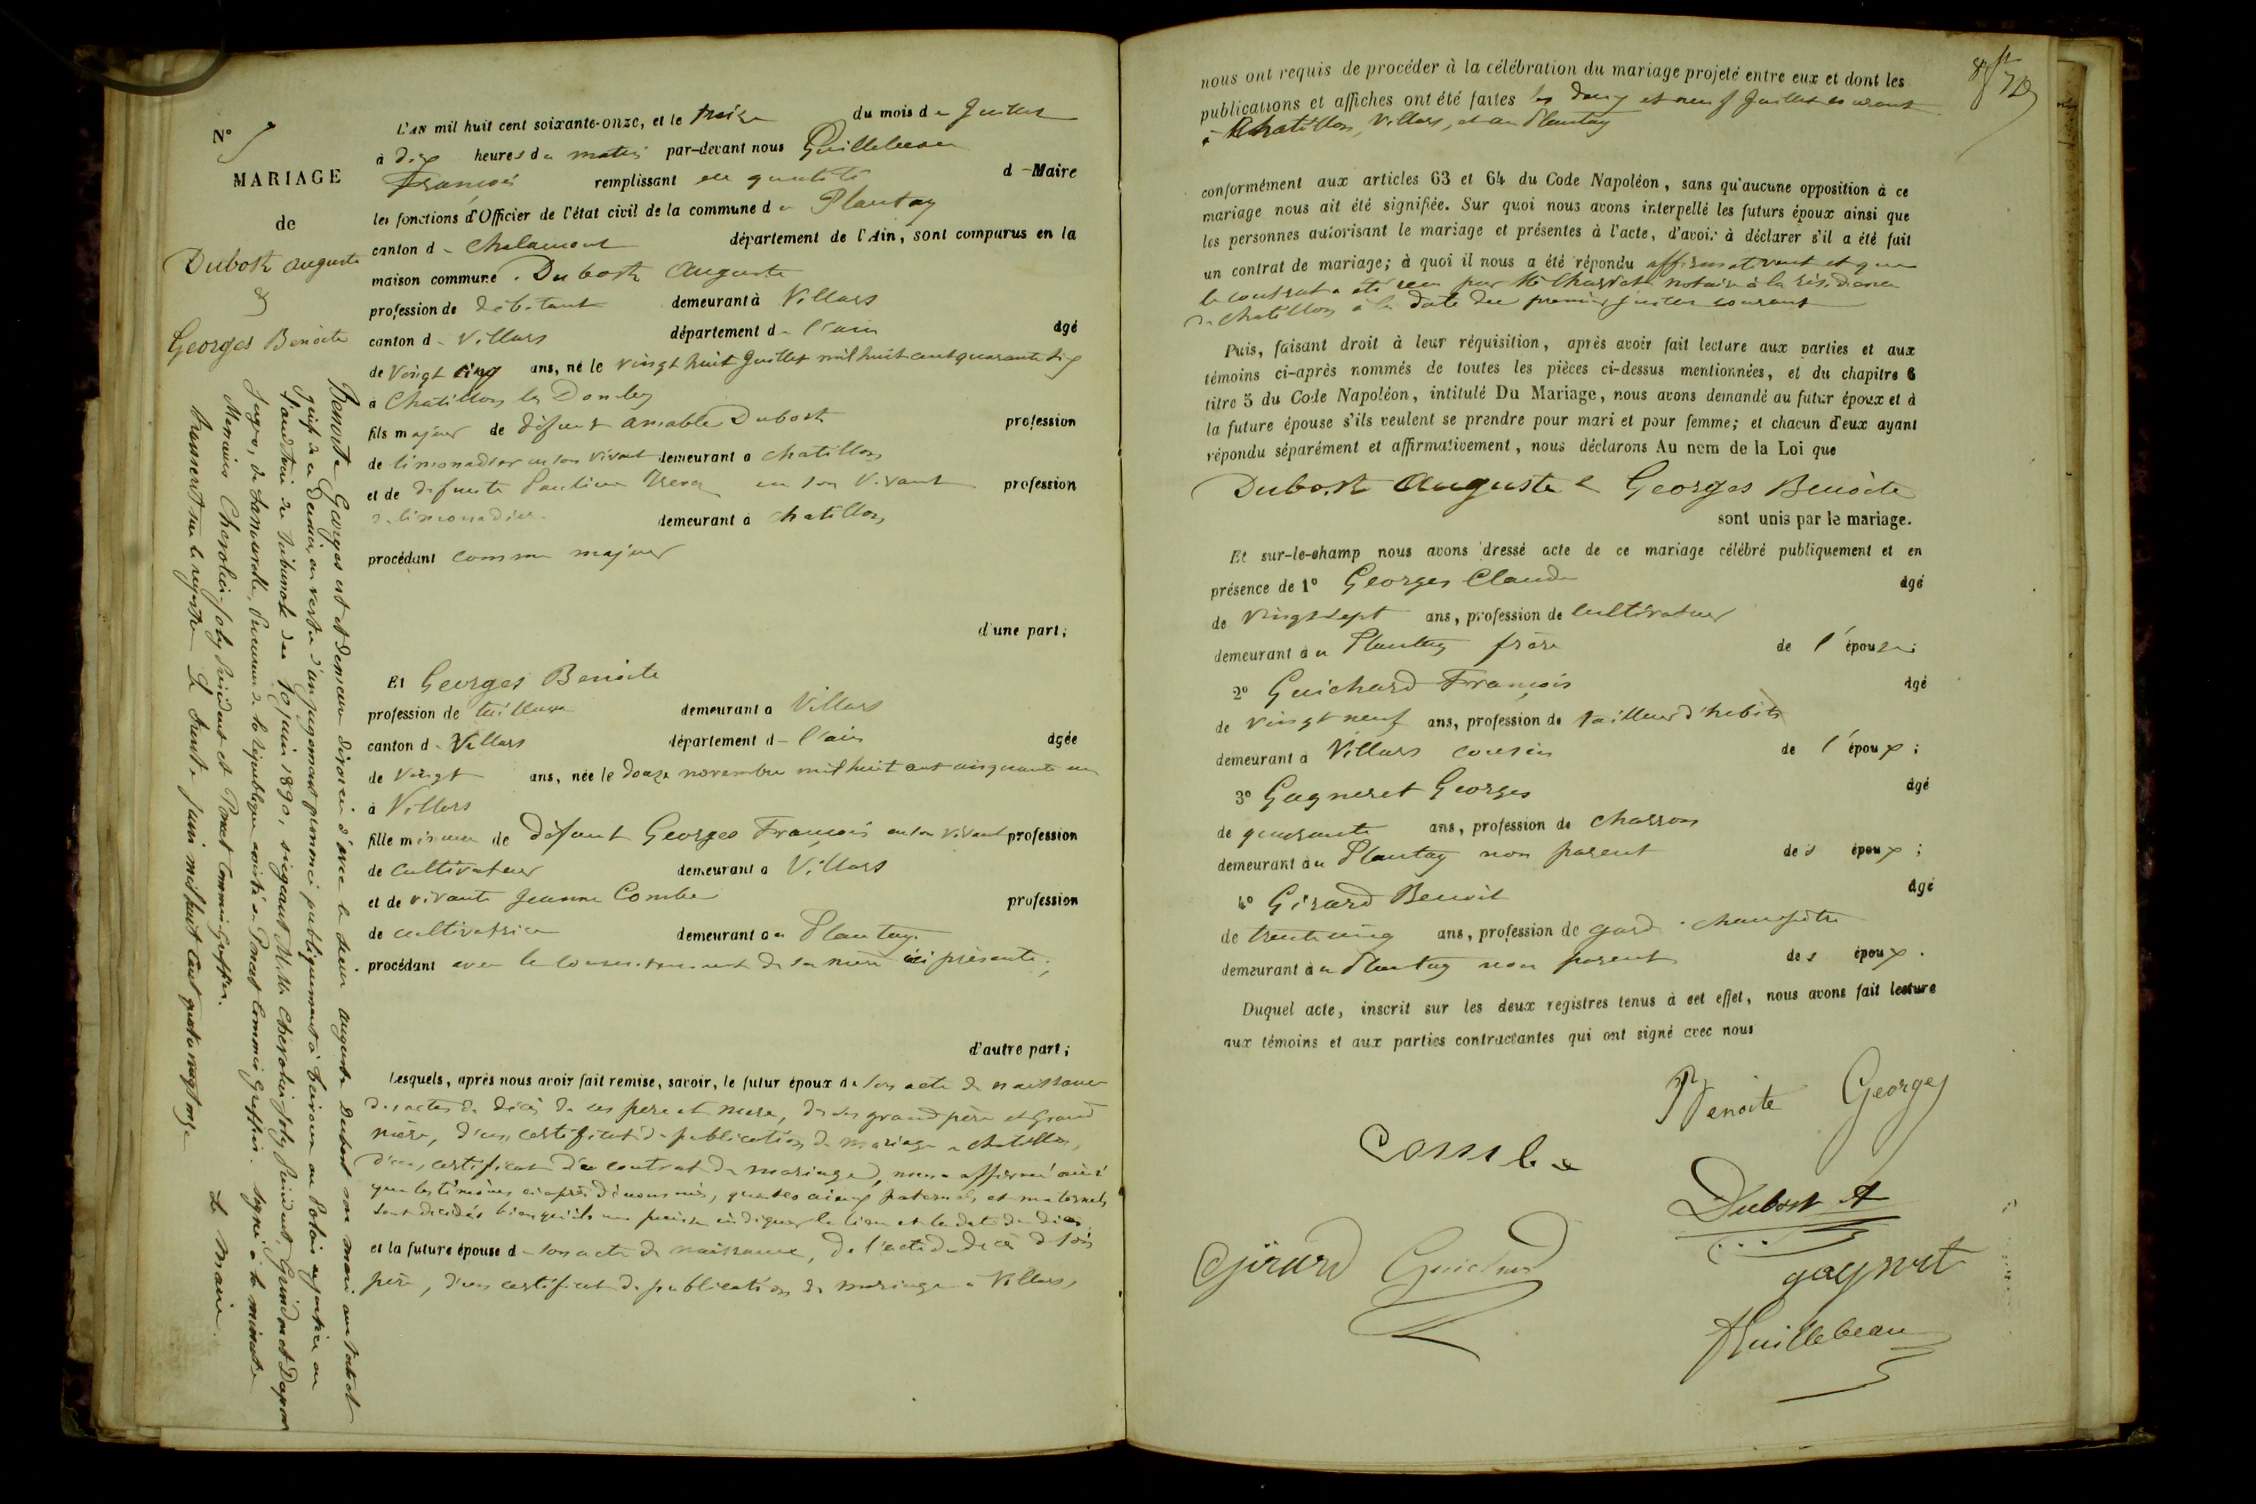 N° 7
MARIAGE
de
Dubost auguste
&
Georges Benoite
L'AN mil huit cent soixante-onze, et le treize du mois de Juillet
à dix heures du matin par-devant nous Guillebeau
François remplissant en qualité d - Maire
les fonctions d'Officier de l'état civil de la commune du Plantay
canton d - Chalamont département de l'Ain, sont comparus en la
maison commune . Dubost Auguste
profession de débitant demeurant à Villars
canton d - Villars département d - l'ain âgé
de Vingt cinq ans, né le vingt huit Juillet mil huit cent quarante six
à Chatillon les Dombes
fils majeur de défunt amable Dubost profession
de limonadier en son vivant demeurant a chatillon
et de défunte Pauline en son vivant profession
de limonadière demeurant à chatillon
procédant comme majeur
d'une part;
Et Georges Benoite
profession de tailleuse demeurant a Villars
canton d - Villars département d - l'ain âgée
de vingt ans, née le douze novembre mil huit cent cinquante un
à Villars
fille mineure de défunt Georges François en son vivant profession
de cultivateur demeurant a Villars
et de vivante Jeanne Combe profession
de cultivatrice demeurant au Plantay
procédant avec le consentement de sa mère ici présente;
d'autre part;
Lesquels, après nous avoir fait remise, savoir, le futur époux de son acte de naissance
des actes de décès de ses père et mère, de ses grand père et Grand
mère, d'un certificat de publication de mariage a chatillon,
d'un certificat de contrat de mariage, nous a affirmé ainsi
que les témoins ci après dénommés, que les aïeux paternels et maternels
sont décédés bien qu'ils ne puisse indiquer le lieu et la date du décès
et la future épouse d - son acte de naissance, de l'acte de décès de son
père, d'un certificat de publication de mariage a Villars,
Benoite Georges est et demeure divorcée d'avec le sieur auguste Dubost son mari au tort et
grief de ce dernier, en vertu d'un jugement prononcé publiquement à Trévoux au Palais de justice en
l'audience du tribunal du 10 juin 1890, siégeant M. M. Chevolin Joly Président, Guindon et
Juges, de Lamurette, Procureur de la république assisté de Poncet Commis greffier. Signé à la minute
Messieurs Chevolin Joly Président et Poncet Commis Greffier.
Transcrit sur le registre Le trente juin mil huit cent quatre vingt onze
Le Maire.
nous ont requis de procéder à la célébration du mariage projeté entre eux et dont les
publications et affiches ont été faites les deux et neuf Juillet courant
a Chatillon, Villars, et au Plantay
conformément aux articles 63 et 64 du Code Napoléon, sans qu'aucune opposition à ce
mariage nous ait été signifiée. Sur quoi nous avons interpellé les futurs époux ainsi que
les personnes autorisant le mariage et présentes à l'acte, d'avoir à déclarer s'il a été fait
un contrat de mariage; à quoi il nous a été répondu affirmativement et que
le contrat a été reçu par Me notaire à la résidence
de Chatillon à la date du premier juillet courant
Puis, faisant droit à leur réquisition, après avoir fait lecture aux parties et aux
témoins ci-après nommés de toutes les pièces ci-dessus mentionnées, et du chapitre 6
titre 5 du Code Napoléon, intitulé Du Mariage, nous avons demandé au futur époux et à
la future épouse s'ils veulent se prendre pour mari et pour femme; et chacun d'eux ayant
répondu séparément et affirmativement, nous déclarons Au nom de la Loi que
Dubost Auguste & Georges Benoite
sont unis par le mariage.
Et sur-le-champ nous avons dressé acte de ce mariage célébré publiquement et en
présence de 1° Georges Claude âgé
de vingt sept ans, profession de cultivateur
demeurant au Plantay frère de l'épouse;
2° Guichard François âgé
de vingt neuf ans, profession de tailleur d'habits
demeurant a Villars cousin de l'époux;
3° Gagneret Georges âgé
de quarante ans, profession de charron
demeurant au Plantay non parent des époux;
4° Girard Benoit âgé
de trente cinq ans, profession de garde champêtre
demeurant au Plantay non parent des époux.
Duquel acte, inscrit sur les deux registres tenus à cet effet, nous avons fait lecture
aux témoins et aux parties contractantes qui ont signé avec nous
Benoite Georges
Combe
Dubost A
Girard Guichard
gagneret
Guillebeau